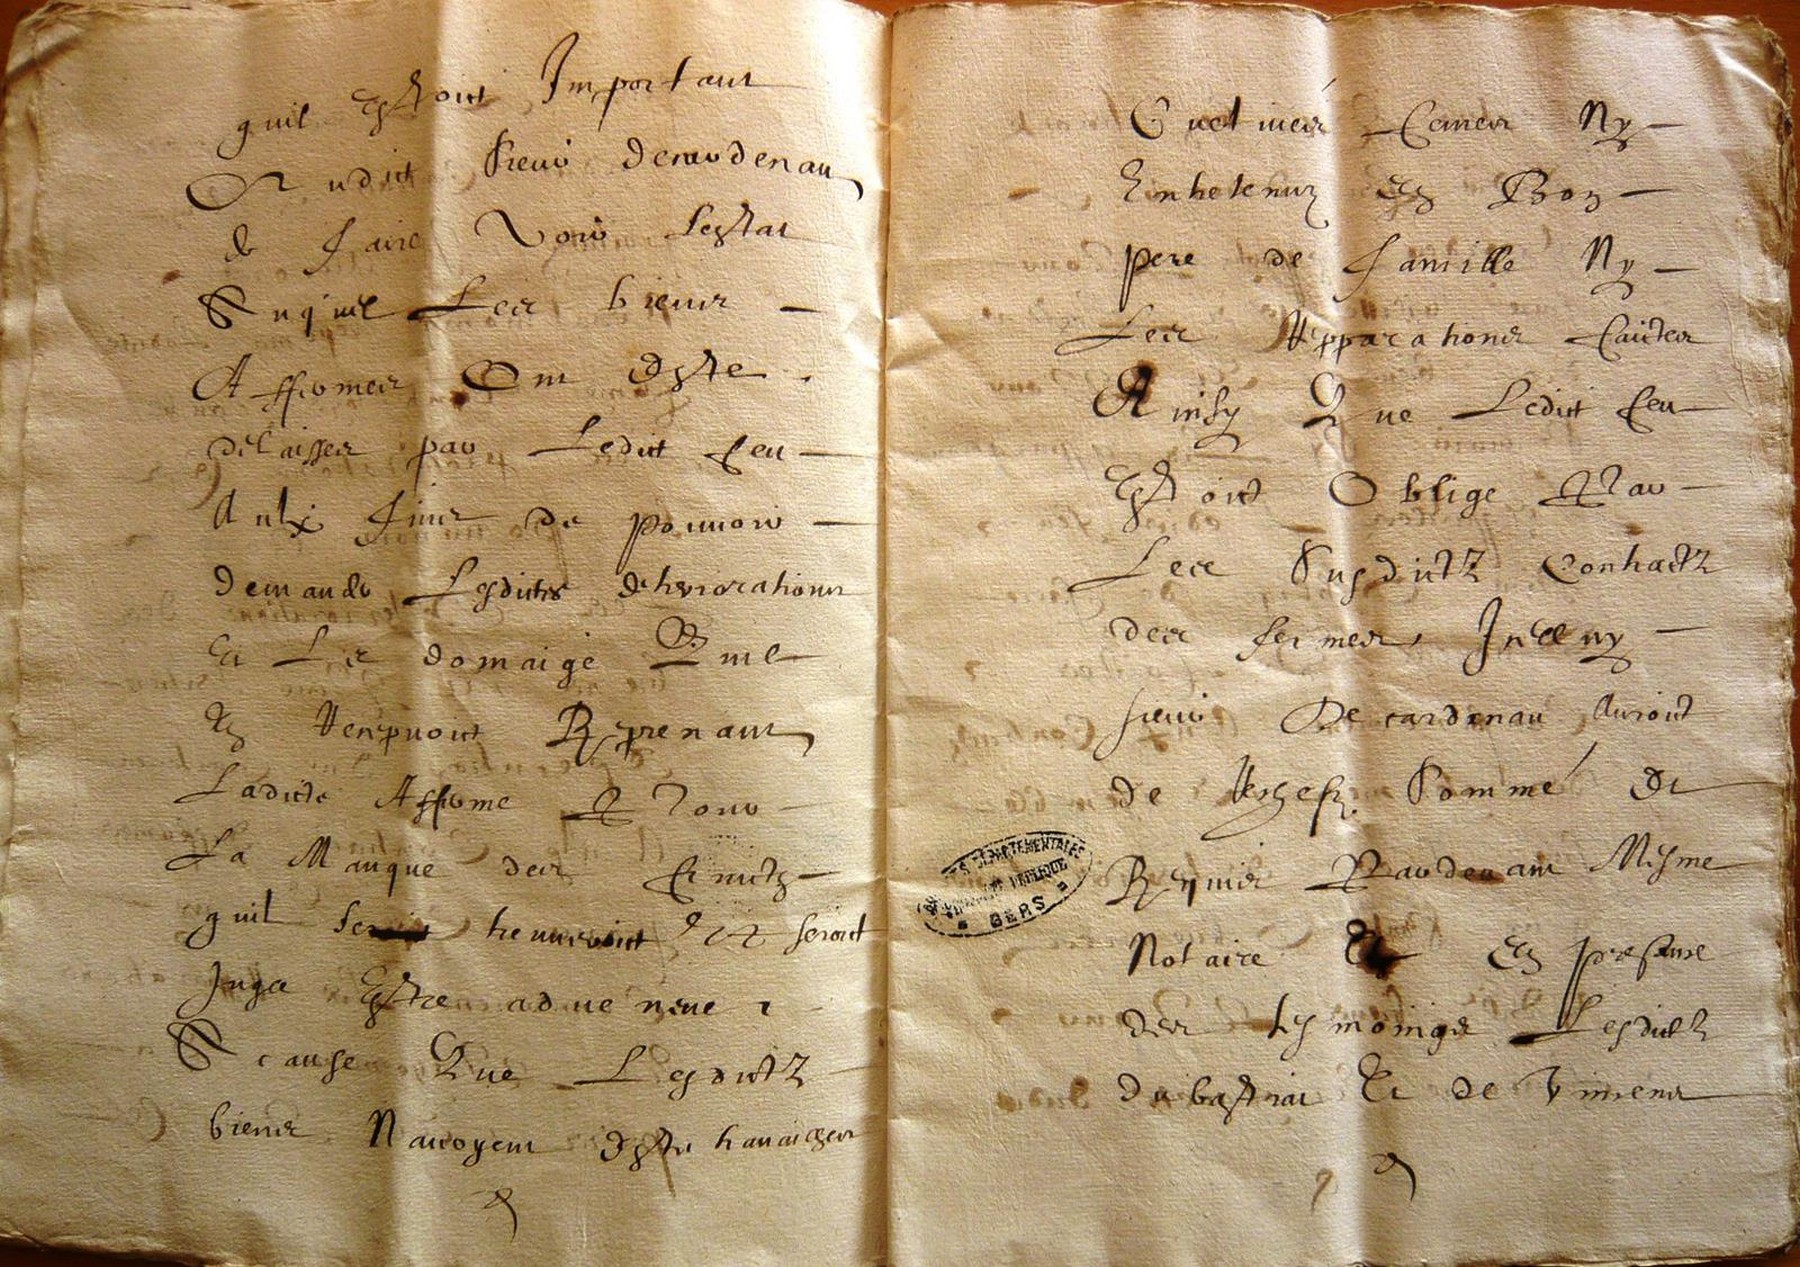 quil Estoict Important
Audict sieur decardenau
de faire Voir Lestat
Auquel Les biens
Affermes Ont Esté
délaisses par Ledict feu
Aulx fins de pouvoir
demander Lesdictes deteriorations
Et Les domaige Quil
En Reprenant
Ladicte Afferme Et Pour
La Manque des fruictz
quil treuveroict Et seroict
Juge Estre advenue
A cause Que Lesdictz
biens Navoyent Esté travaiges
Cultives femes Ny
Entretenuz En Bon
pere de famille Ny
Les Repparations faictes
Ainsy Que Ledict feu
Estoict Oblige Par
Les Susdictz Contractz
des fermes, Icelluy
sieur De cardenau Auroict
de Verges Sommé Et
Requis Pardevant Mesme
Notaire Et En presence
des tesmoings Lesdictz
dubastiat Et de Vimens
ARCHIVES DÉPARTEMENTALES
GERS